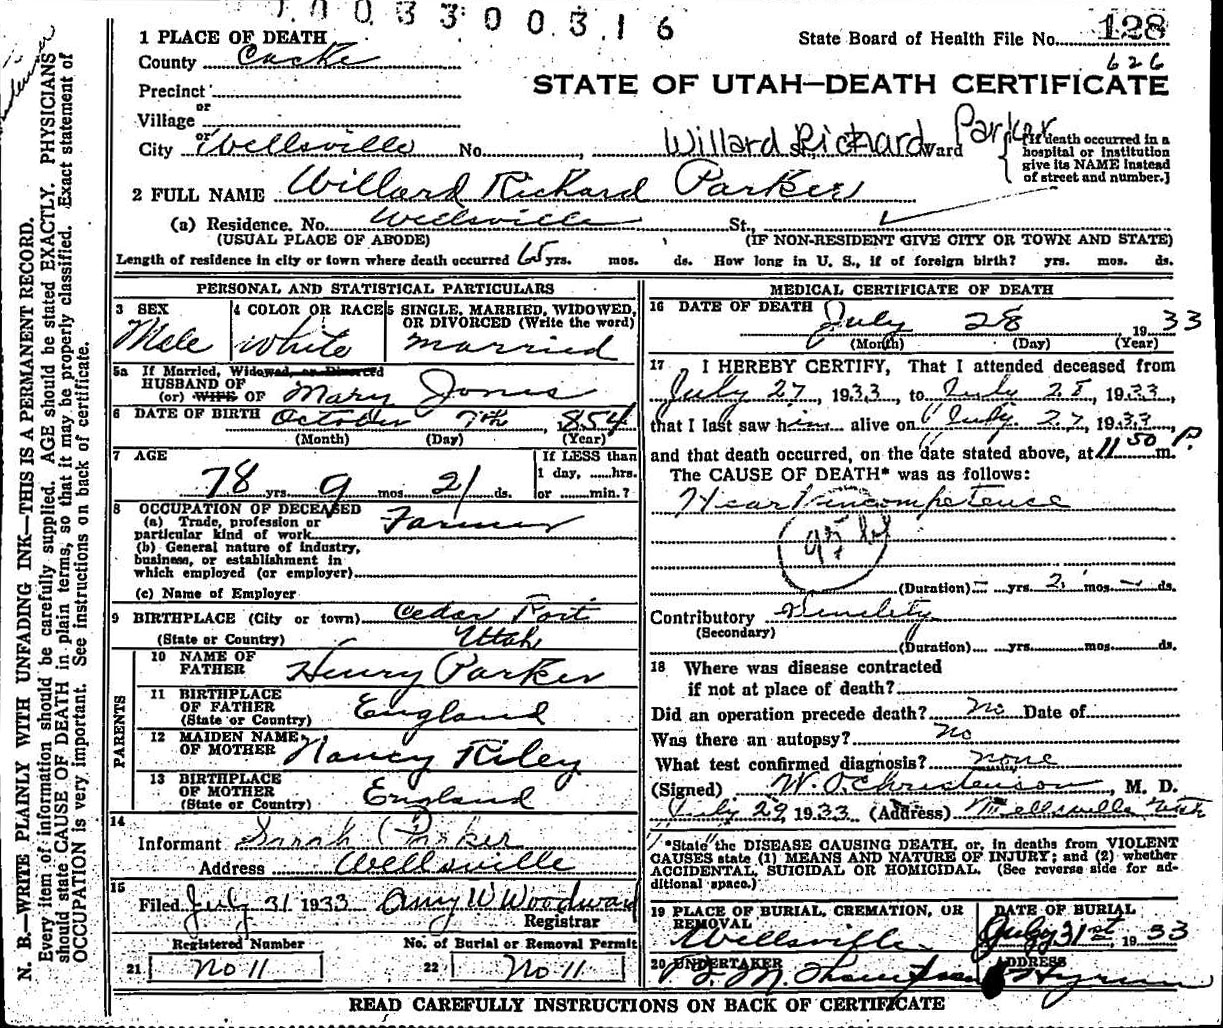 7 0 0 3 3 0 0 3 1 6
128
626
State Board of Health File No.
STATE OF UTAH—DEATH CERTIFICATE
1 PLACE OF DEATH
County Cache
Precinct
or
Village
or
City Wellsville No. Willard Richard Parker Ward
[If death occurred in a
hospital or institution
give its NAME instead
of street and number.]
2 FULL NAME Willard Richard Parker
(a) Residence. No. Wellsville St.,
(USUAL PLACE OF ABODE) (IF NON-RESIDENT GIVE CITY OR TOWN AND STATE)
Length of residence in city or town where death occurred 65 yrs. mos. ds. How long in U. S., if of foreign birth? yrs. mos. ds.
PERSONAL AND STATISTICAL PARTICULARS
3 SEX Male
4 COLOR OR RACE White
5 SINGLE, MARRIED, WIDOWED,
OR DIVORCED (Write the word)
Married
5a If Married, Widowed, or Divorced
HUSBAND OF
(or) WIFE OF Mary Jones
6 DATE OF BIRTH October 7th, 1854
(Month) (Day) (Year)
7 AGE
78 yrs. 9 mos. 21 ds.
If LESS than
1 day, ......hrs.
or ......min.?
8 OCCUPATION OF DECEASED
(a) Trade, profession or
particular kind of work Farmer
(b) General nature of industry,
business, or establishment in
which employed (or employer)
(c) Name of Employer
9 BIRTHPLACE (City or town) Cedar Fort
(State or Country) Utah
PARENTS
10 NAME OF
FATHER Henry Parker
11 BIRTHPLACE
OF FATHER
(State or Country) England
12 MAIDEN NAME
OF MOTHER Nancy Riley
13 BIRTHPLACE
OF MOTHER
(State or Country) England
14
Informant Sarah Parker
Address Wellsville
15
Filed July 31 1933 Amy W Woodward
Registrar
Registered Number
21 No 11
No. of Burial or Removal Permit
22 No 11
MEDICAL CERTIFICATE OF DEATH
16 DATE OF DEATH
July 28 1933
(Month) (Day) (Year)
17 I HEREBY CERTIFY, That I attended deceased from
July 27, 1933, to July 28, 1933,
that I last saw him alive on July 27, 1933,
and that death occurred, on the date stated above, at 11 50 P. m.
The CAUSE OF DEATH* was as follows:
Heart incompetence
(Duration) — yrs. 2 mos. — ds.
Contributory Senility
(Secondary)
(Duration) yrs. mos. ds.
18 Where was disease contracted
if not at place of death?
Did an operation precede death? No Date of
Was there an autopsy? No
What test confirmed diagnosis? none
(Signed) W. O. Christenson, M. D.
July 29, 1933 (Address) Wellsville Utah
*State the DISEASE CAUSING DEATH, or, in deaths from VIOLENT
CAUSES state (1) MEANS AND NATURE OF INJURY; and (2) whether
ACCIDENTAL, SUICIDAL OR HOMICIDAL. (See reverse side for ad-
ditional space.)
19 PLACE OF BURIAL, CREMATION, OR
REMOVAL
Wellsville
DATE OF BURIAL
July 31st, 1933
20 UNDERTAKER
ADDRESS
Hyrum
READ CAREFULLY INSTRUCTIONS ON BACK OF CERTIFICATE
N. B.—WRITE PLAINLY WITH UNFADING INK—THIS IS A PERMANENT RECORD.
Every item of information should be carefully supplied. AGE should be stated EXACTLY. PHYSICIANS
should state CAUSE OF DEATH in plain terms, so that it may be properly classified. Exact statement of
OCCUPATION is very important. See instructions on back of certificate.